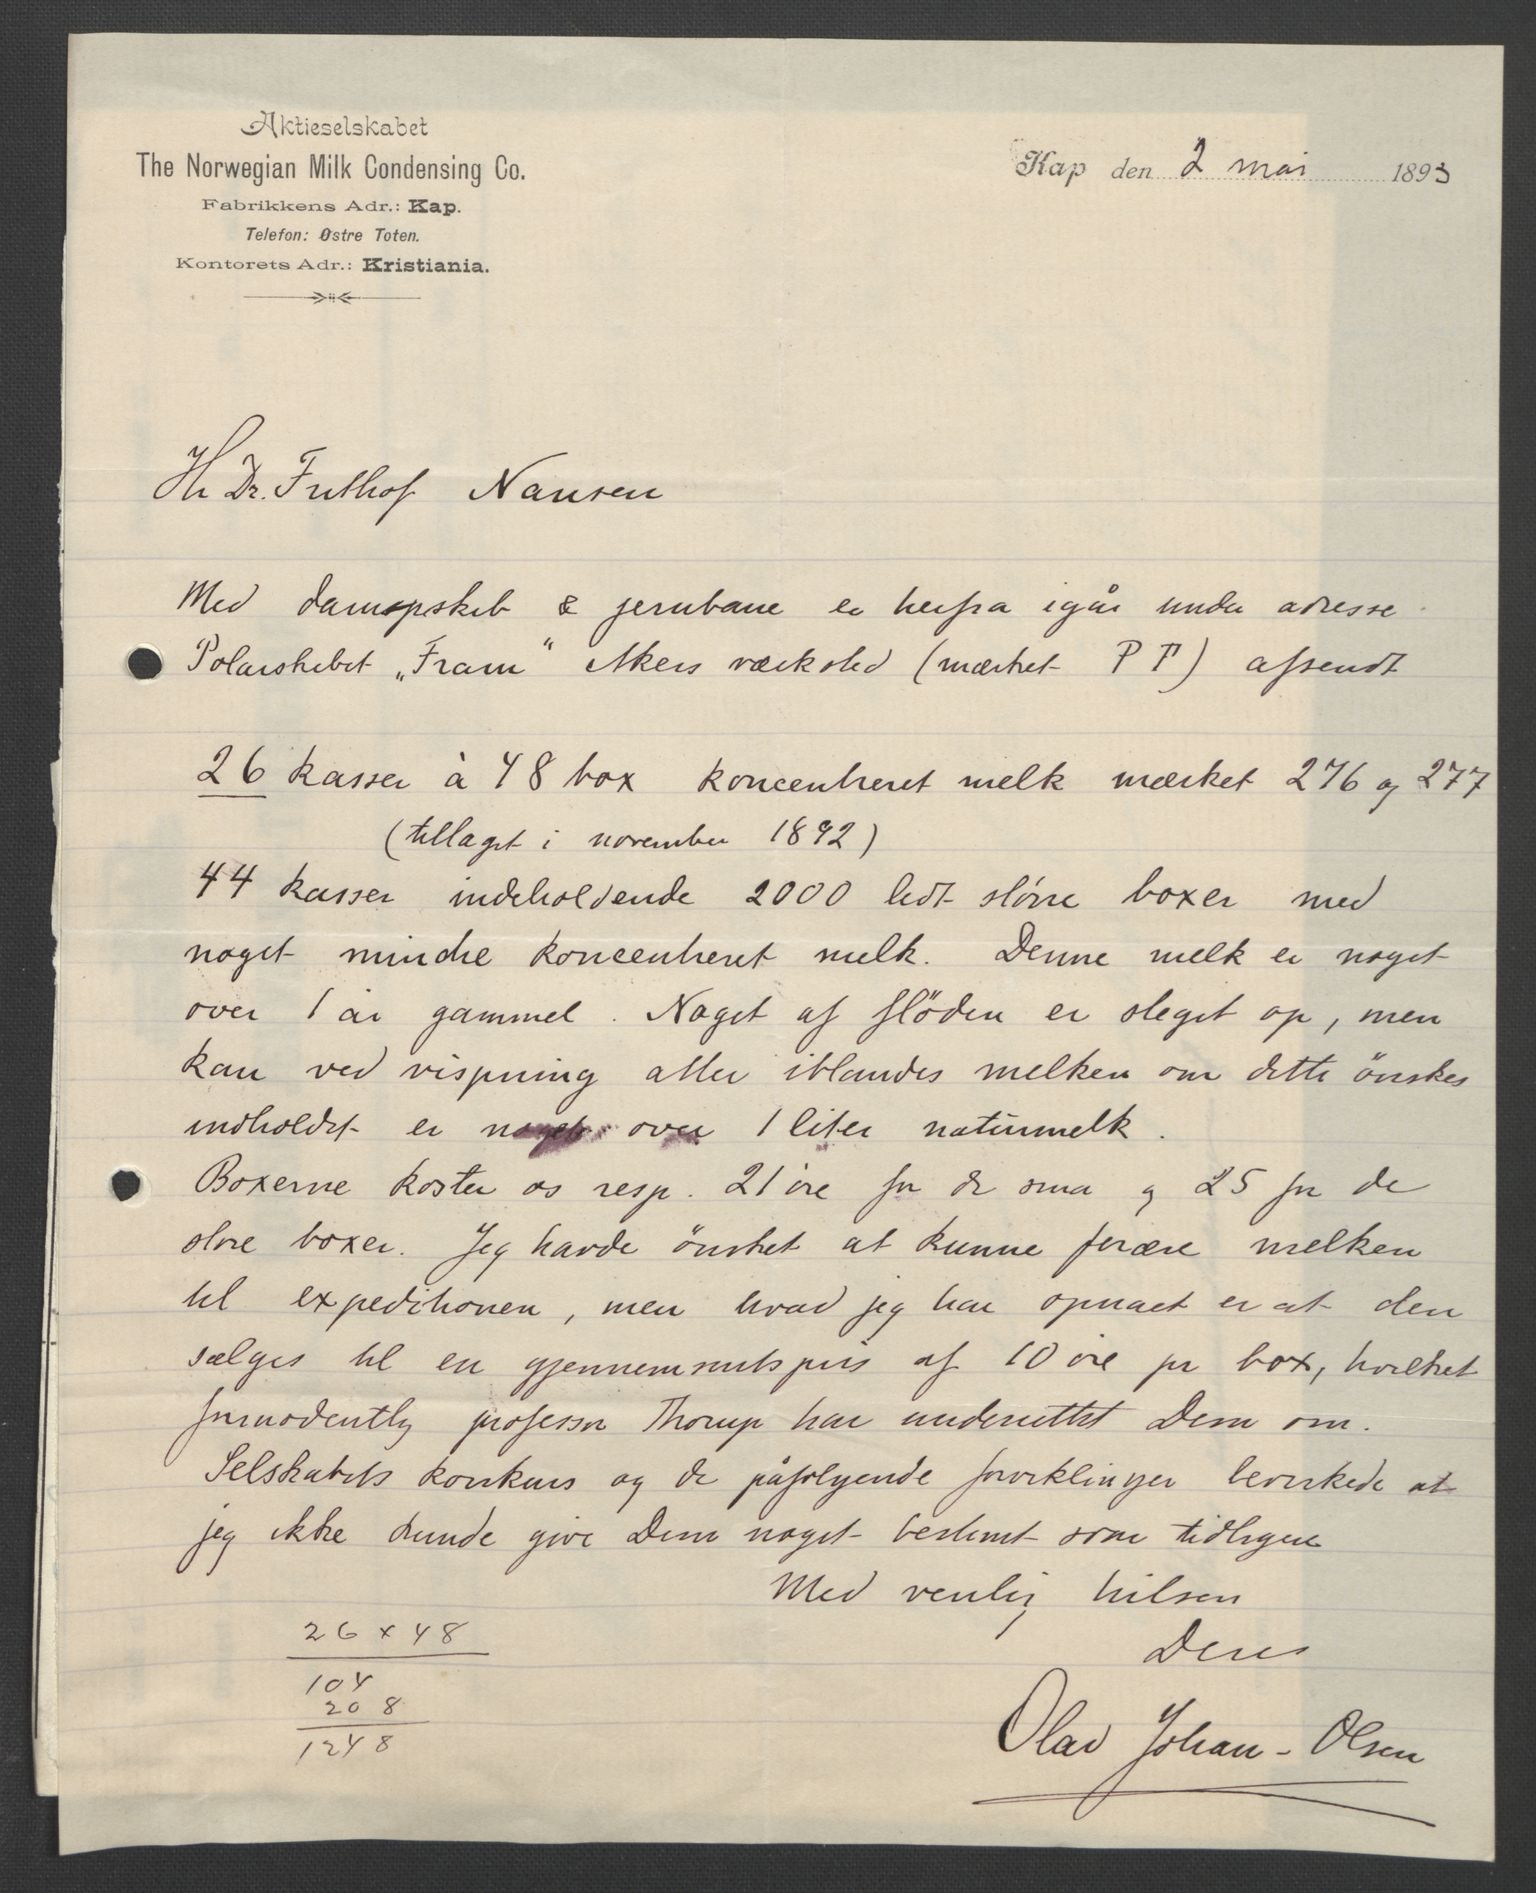 Aktieselskabet
The Norwegian Milk Condensing Co.
Fabrikkens Adr.: Kap.
Telefon: Østre Toten.
Kontorets Adr.: Kristiania.
Kap den 2 mai 1893
Hr Dr. Frithof Nansen
Med dampskib & jernbane er herfra igår under adresse
Polarskibet „Fram" Akers værksted (mærket P P) afsendt
26 kasser à 48 box koncentreret melk mærket 276 og 277
(tillaget i november 1892)
44 kasser indeholdende 2000 lidt större boxer med
noget mindre koncentreret melk. Denne melk er noget
over 1 år gammel. Noget af flöden er sleget op, men
kan ved vispning atter iblandes melken om dette önskes
indholdet er noget over 1 liter naturmelk.
Boxerne koster os resp. 21 öre for de sma og 25 for de
store boxer. Jeg havde önsket at kunne forære melken
til expeditionen, men hvad jeg har opnaet er at den
sælges til en gjennemsnitspris af 10 öre pr box, hvilket
formodentlig professor Thorup har underrettet Dem om.
Selskabets konkurs og de påfølgende forviklinger bevirkede at
jeg ikke kunde give Dem noget bestemt svar tidligere
Med venlig hilsen
Deres
Olav Johan-Olsen
26 x 48
104
208
1248